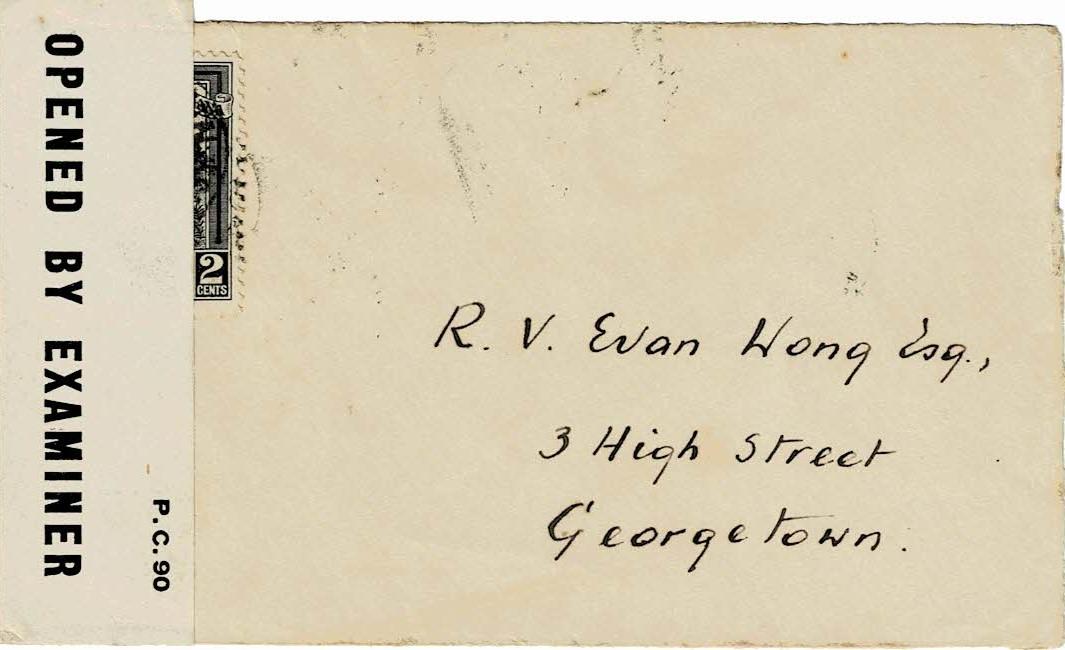 OPENED BY EXAMINER
P.C.90
2
CENTS
R. V. Evan Wong Esq.,
3 High Street
Georgetown.